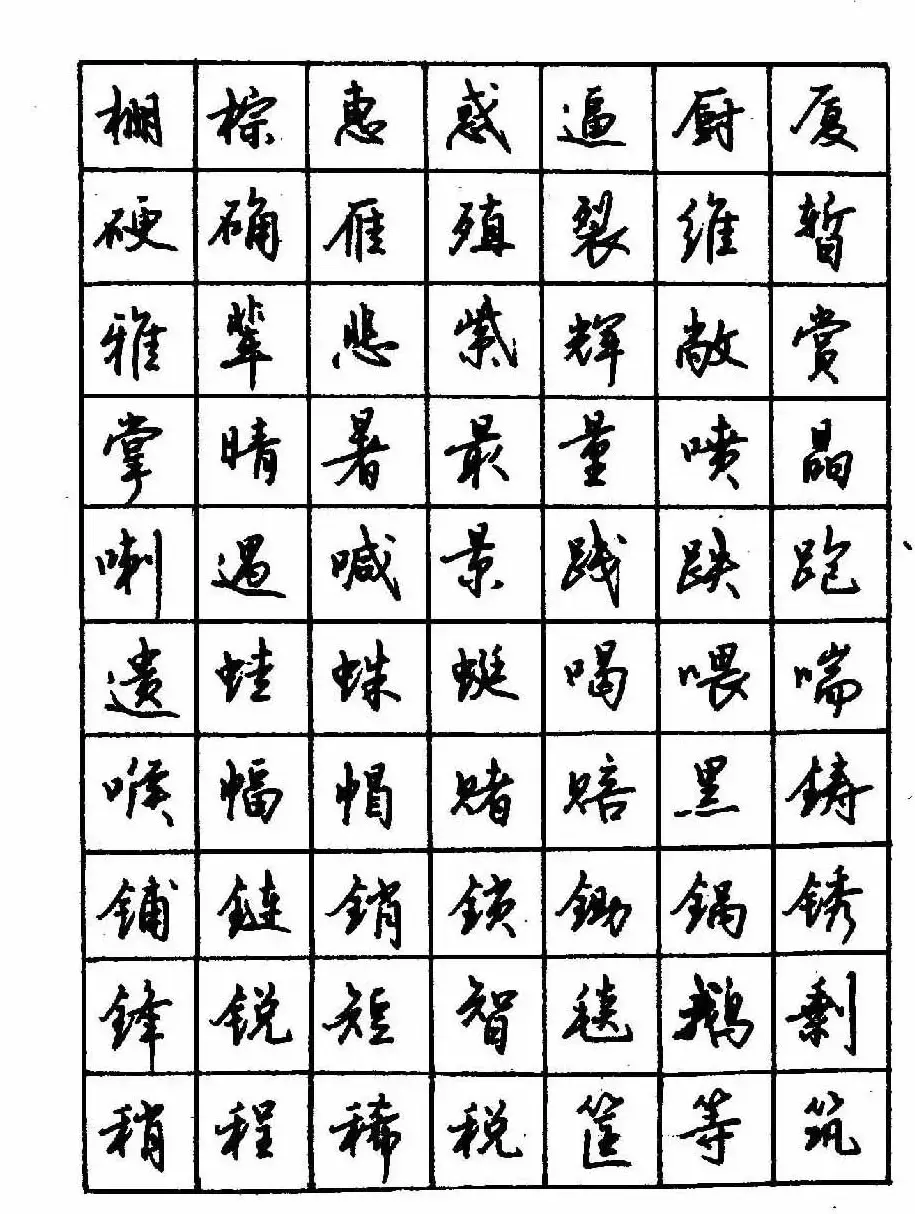 棚棕惠惑逼厨厦
硬确雁殖裂维暂
雅辈悲紫辉敞赏
掌晴暑最量喷晶
喇遇喊景践跌跑
遗蛙蛛蜓喝喂喘
喉幅帽赌赔黑铸
铺链销锁锄锅锈
锋锐短智毯鹅剩
稍程稀税筐等筑